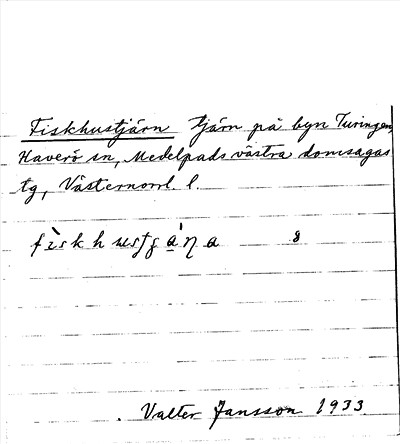 Fiskhustjärn tjärn på byn Turingen,
Haverö sn, Medelpads västra domsagas
tg, Västernorrl. l.
Valter Jansson 1933